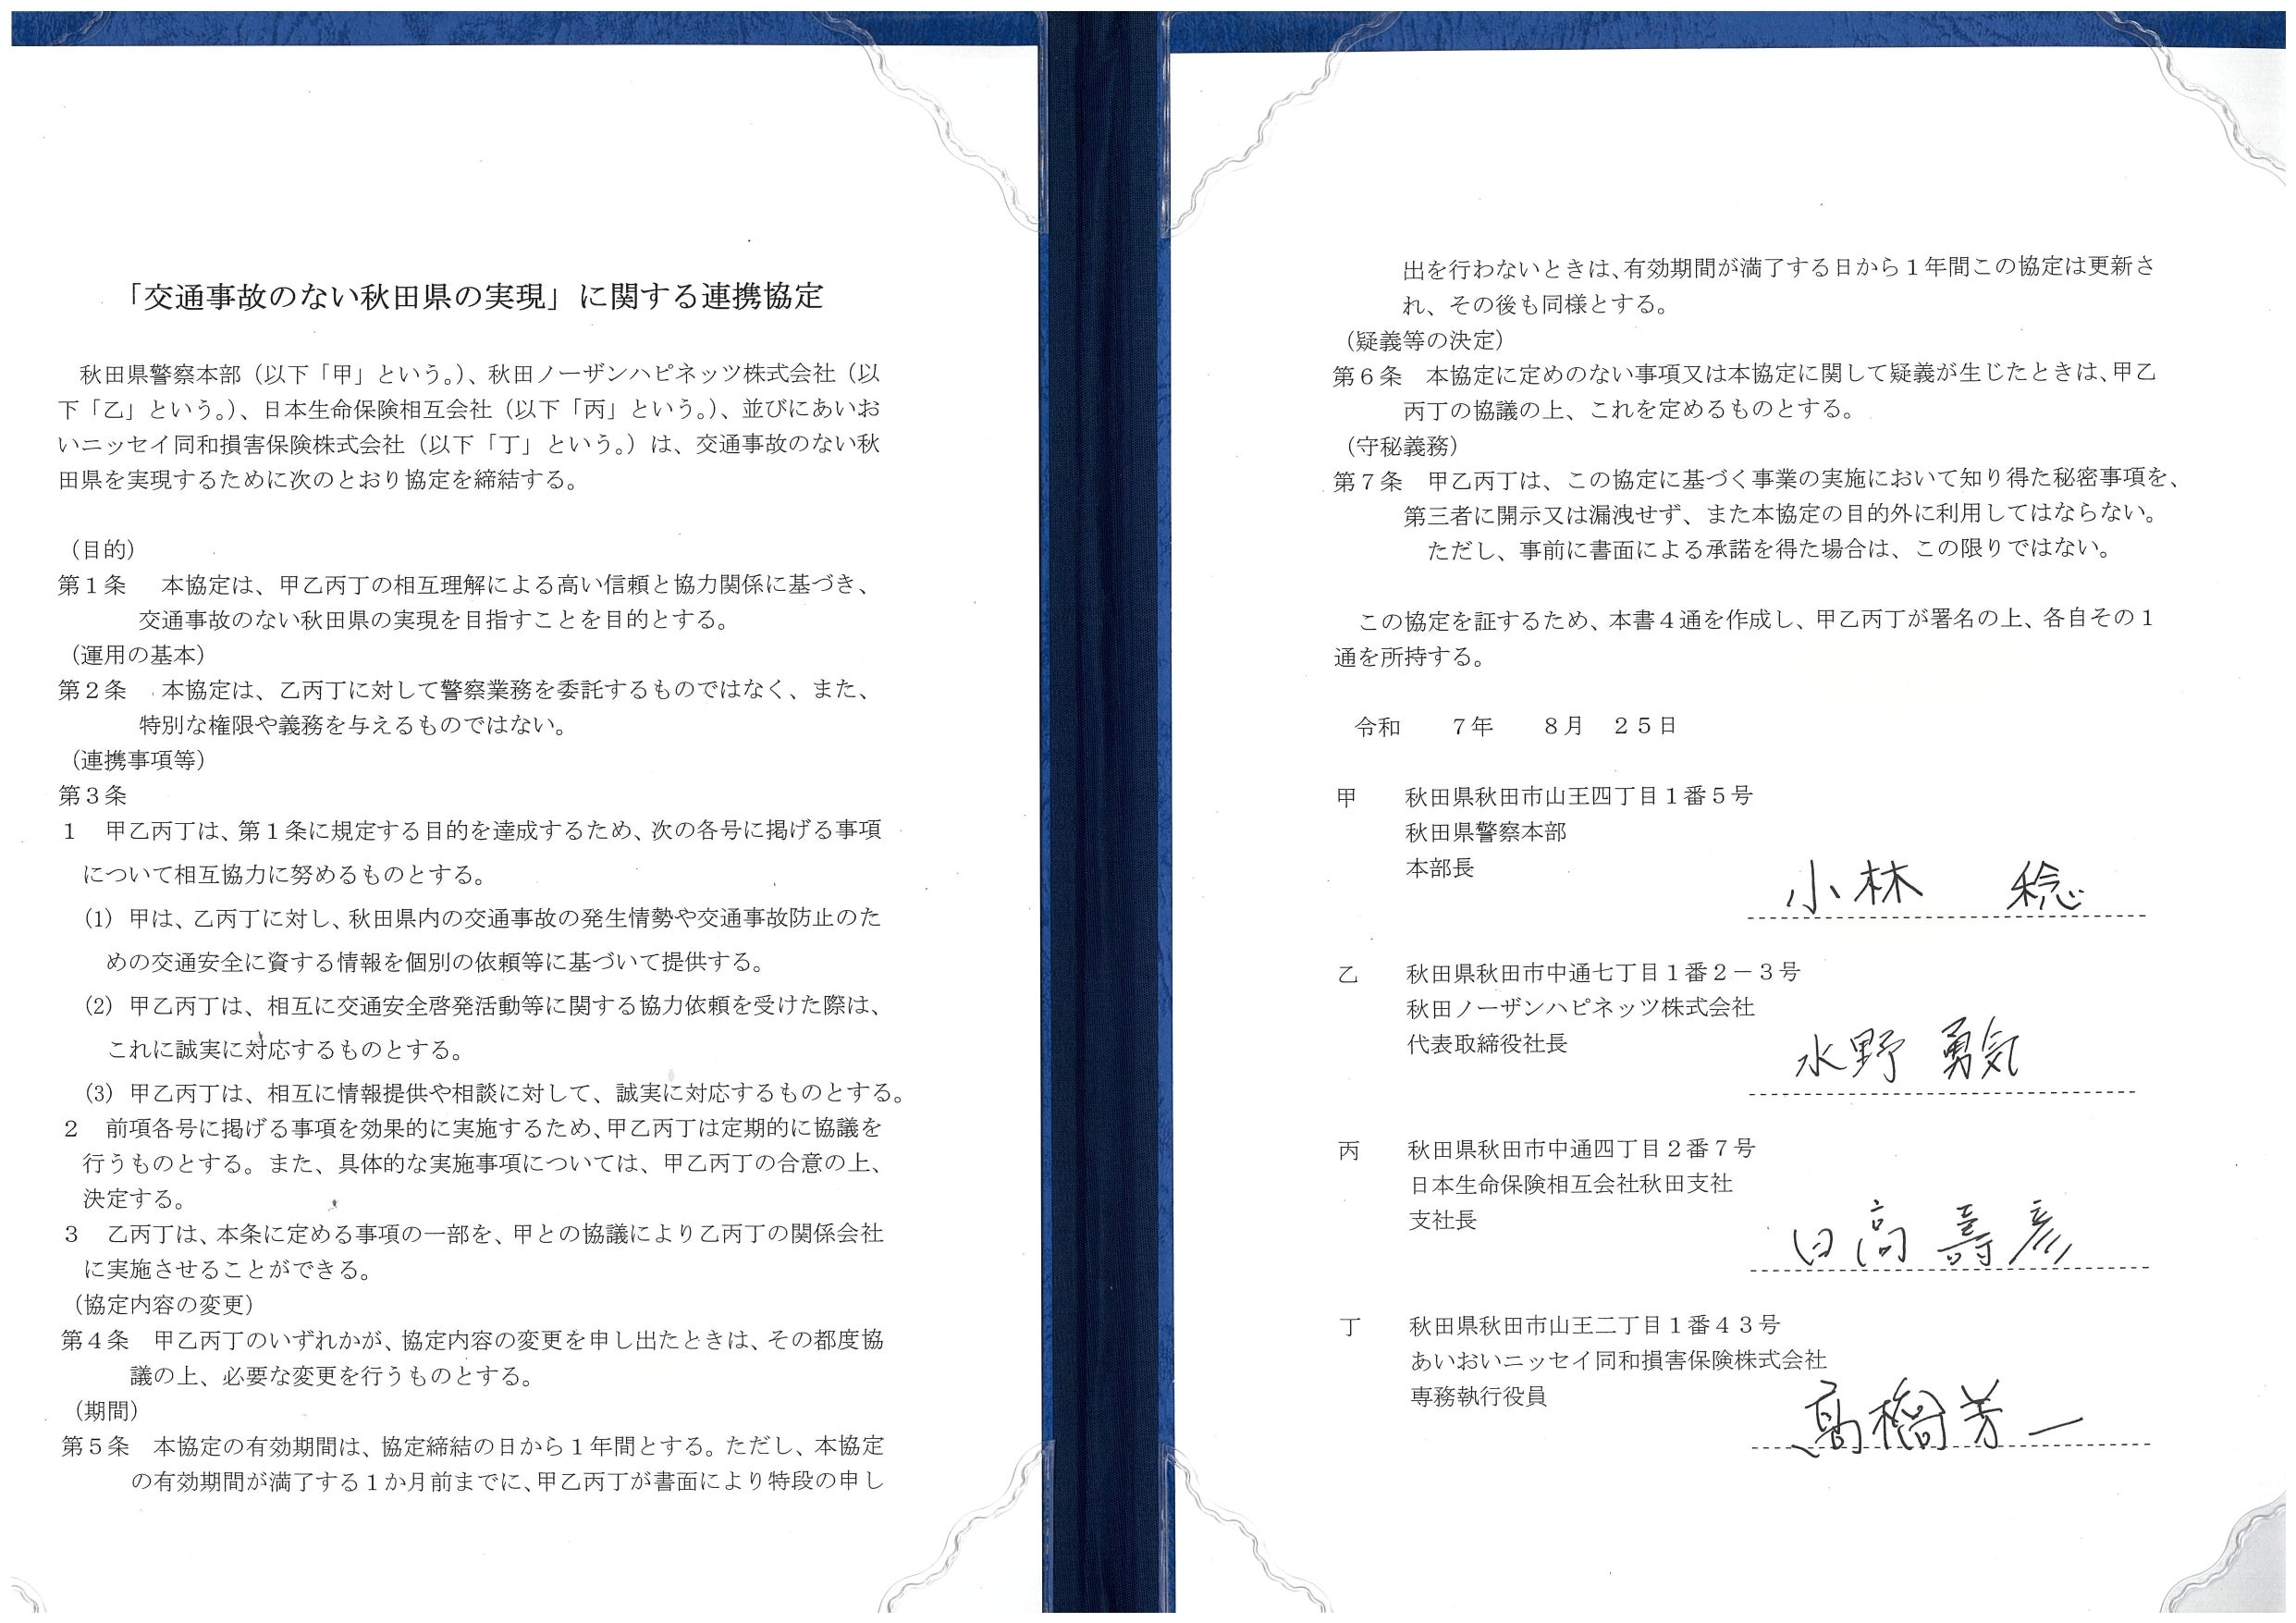 「交通事故のない秋田県の実現」に関する連携協定
秋田県警察本部（以下「甲」という。）、秋田ノーザンハピネッツ株式会社（以
下「乙」という。）、日本生命保険相互会社（以下「丙」という。）、並びにあいお
いニッセイ同和損害保険株式会社（以下「丁」という。）は、交通事故のない秋
田県を実現するために次のとおり協定を締結する。
（目的）
第１条　本協定は、甲乙丙丁の相互理解による高い信頼と協力関係に基づき、
交通事故のない秋田県の実現を目指すことを目的とする。
（運用の基本）
第２条　本協定は、乙丙丁に対して警察業務を委託するものではなく、また、
特別な権限や義務を与えるものではない。
（連携事項等）
第３条
１　甲乙丙丁は、第１条に規定する目的を達成するため、次の各号に掲げる事項
について相互協力に努めるものとする。
(1) 甲は、乙丙丁に対し、秋田県内の交通事故の発生情勢や交通事故防止のた
めの交通安全に資する情報を個別の依頼等に基づいて提供する。
(2) 甲乙丙丁は、相互に交通安全啓発活動等に関する協力依頼を受けた際は、
これに誠実に対応するものとする。
(3) 甲乙丙丁は、相互に情報提供や相談に対して、誠実に対応するものとする。
２　前項各号に掲げる事項を効果的に実施するため、甲乙丙丁は定期的に協議を
行うものとする。また、具体的な実施事項については、甲乙丙丁の合意の上、
決定する。
３　乙丙丁は、本条に定める事項の一部を、甲との協議により乙丙丁の関係会社
に実施させることができる。
（協定内容の変更）
第４条　甲乙丙丁のいずれかが、協定内容の変更を申し出たときは、その都度協
議の上、必要な変更を行うものとする。
（期間）
第５条　本協定の有効期間は、協定締結の日から１年間とする。ただし、本協定
の有効期間が満了する１か月前までに、甲乙丙丁が書面により特段の申し
出を行わないときは、有効期間が満了する日から１年間この協定は更新さ
れ、その後も同様とする。
（疑義等の決定）
第６条　本協定に定めのない事項又は本協定に関して疑義が生じたときは、甲乙
丙丁の協議の上、これを定めるものとする。
（守秘義務）
第７条　甲乙丙丁は、この協定に基づく事業の実施において知り得た秘密事項を、
第三者に開示又は漏洩せず、また本協定の目的外に利用してはならない。
ただし、事前に書面による承諾を得た場合は、この限りではない。
この協定を証するため、本書４通を作成し、甲乙丙丁が署名の上、各自その１
通を所持する。
令和　７年　８月　２５日
甲　秋田県秋田市山王四丁目１番５号
秋田県警察本部
本部長
小林　稔
乙　秋田県秋田市中通七丁目１番２－３号
秋田ノーザンハピネッツ株式会社
代表取締役社長
水野 勇気
丙　秋田県秋田市中通四丁目２番７号
日本生命保険相互会社秋田支社
支社長
日高 壽彦
丁　秋田県秋田市山王二丁目１番４３号
あいおいニッセイ同和損害保険株式会社
専務執行役員
髙橋芳一